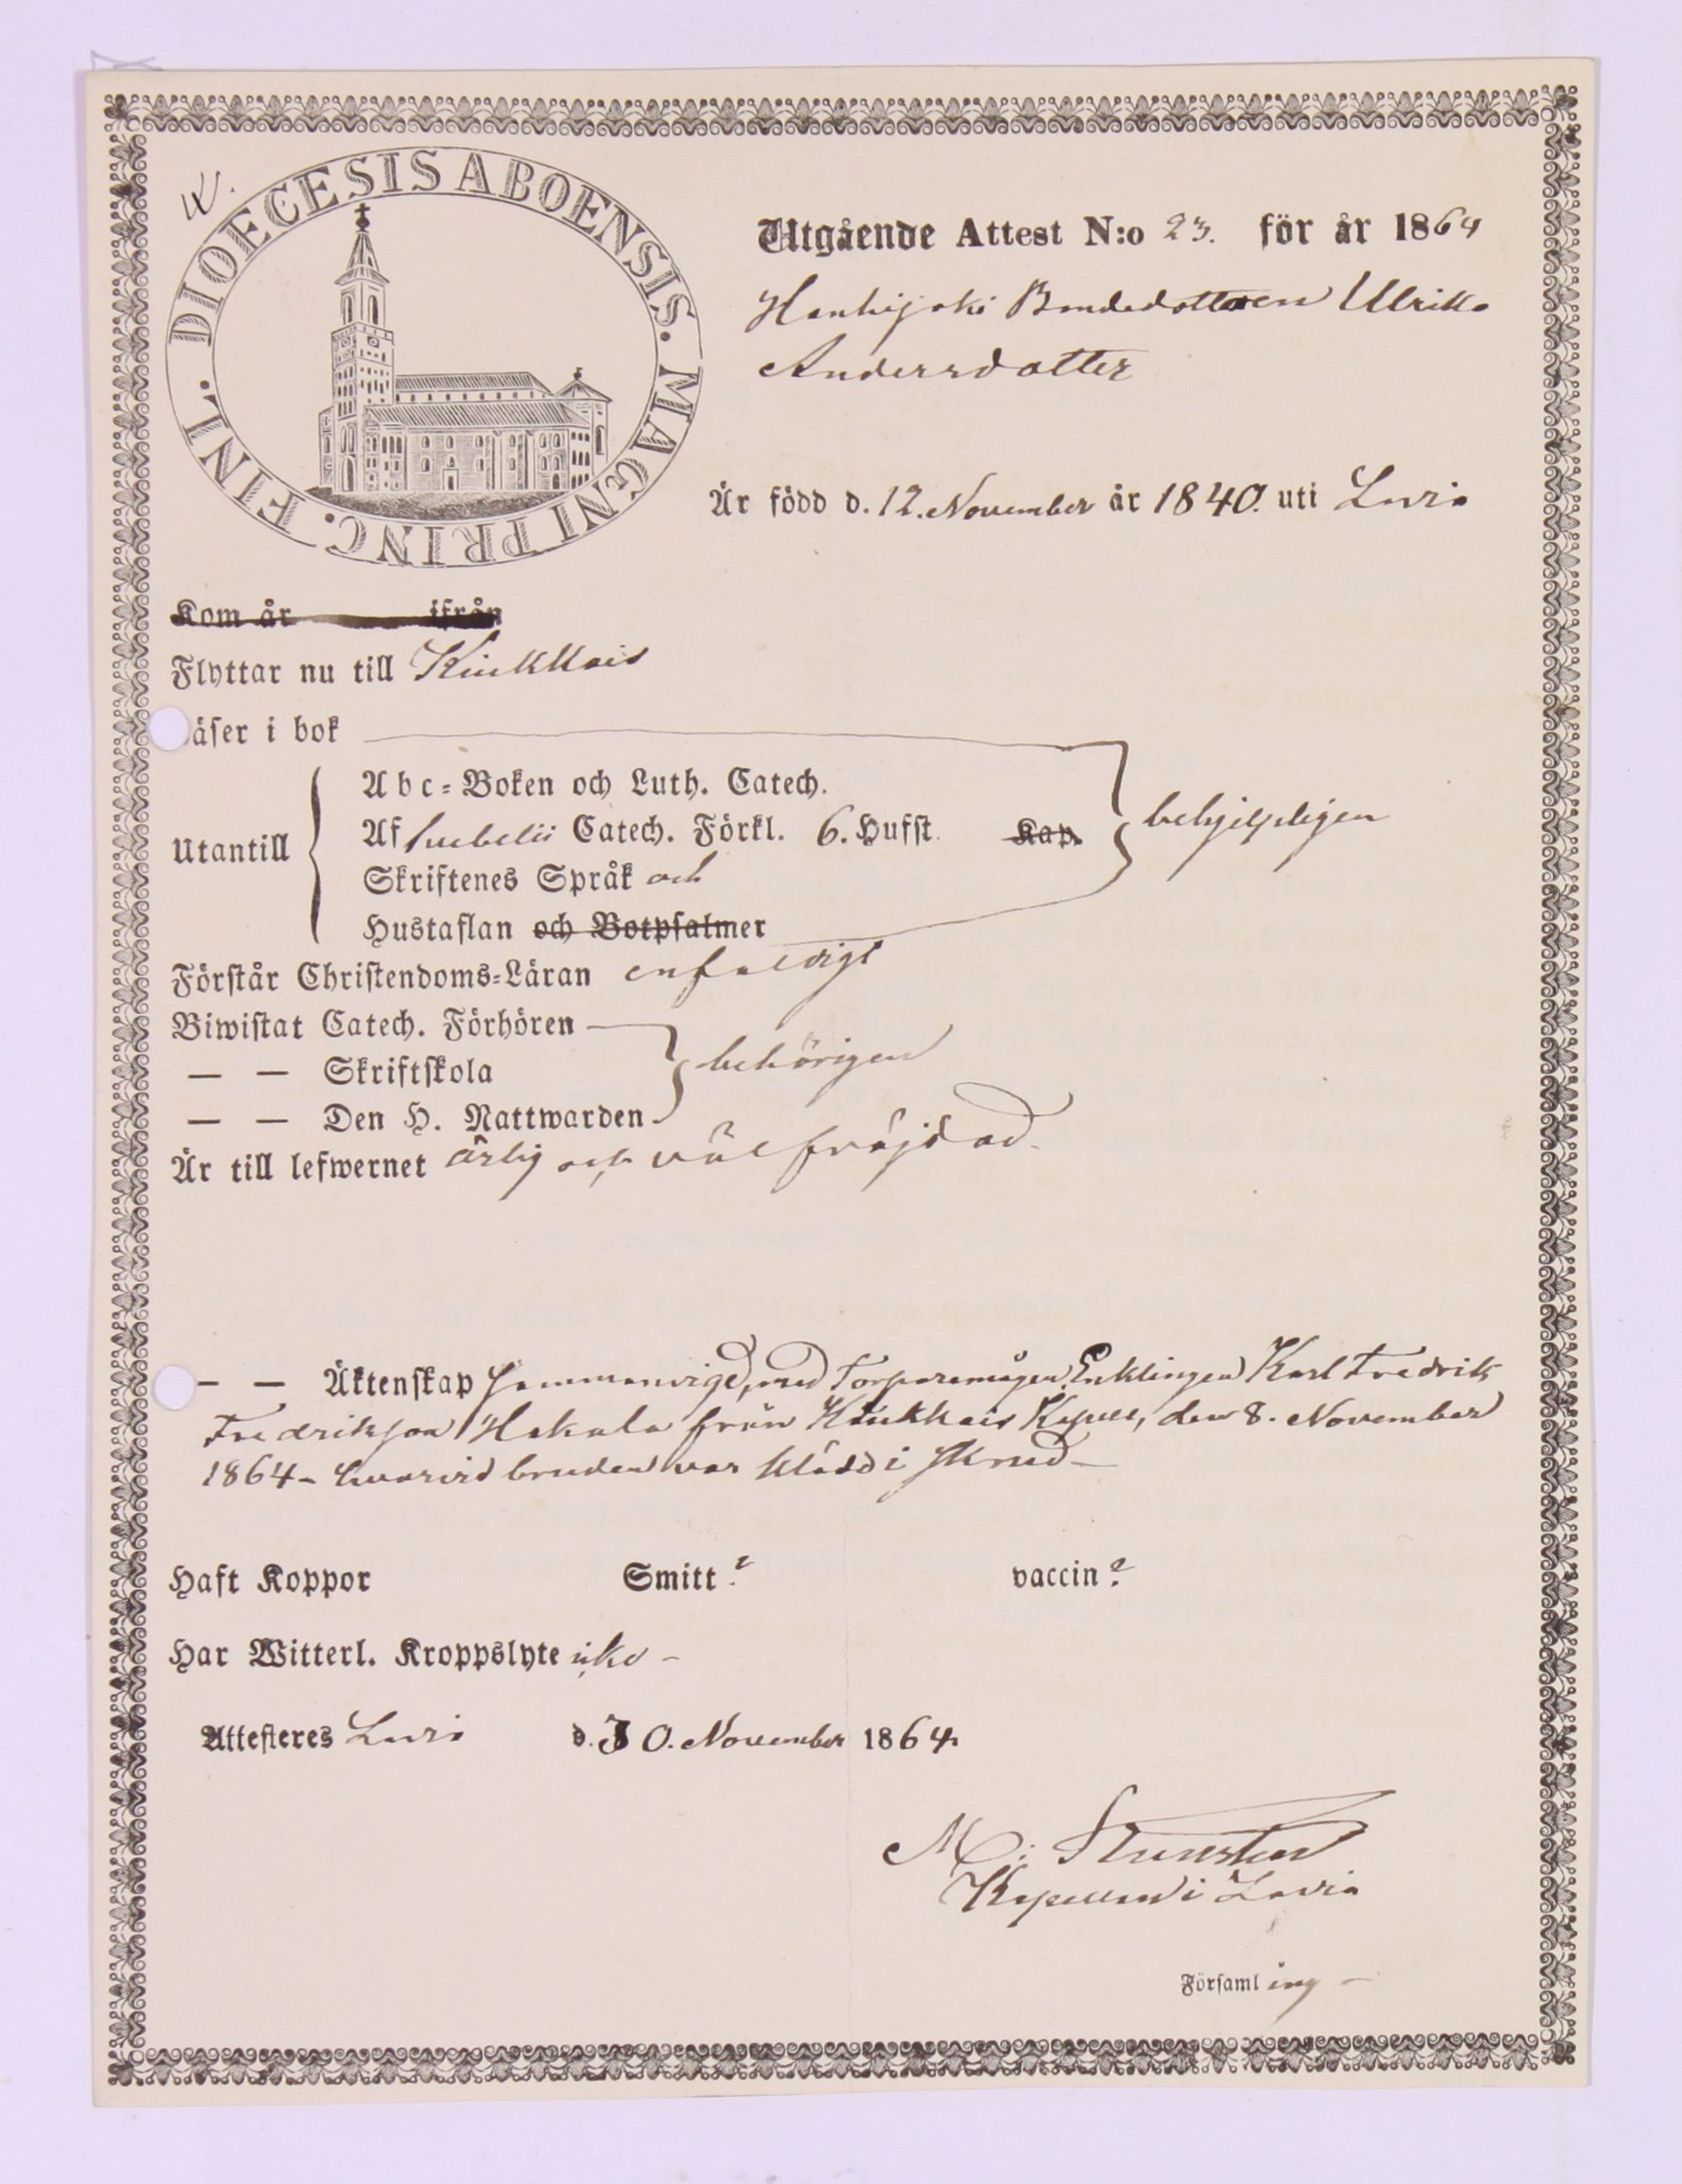 DIOECESIS ABOENSIS. MAGNI PRINC. FINL.
Utgående Attest N:o 23. för år 1864
Honkijoki Bondedotteren Ulrika
Andersdotter
Är född d. 12. November år 1840. uti Lavia
Kom år ifrån
Flyttar nu till Kiukkais
äser i bok
Abc-Boken och Luth. Catech.
Utantill
Af Svebelii Catech. Förkl. 6. Hufst. Kap. behjelpligen
Skriftenes Språk och
Hustaflan och Botpsalmer
Förstår Christendoms-Läran enfaldigt
Biwistat Catech. Förhören
— — Skriftskola behörigen
— — Den H. Nattwarden
Är till lefwernet ärlig och välfräjdad.
— — Äktenskap Sammanvigd, med Torparemågen Enklingen Karl Fredrik
Fredriksson Hakala från Kiukkais Kapell, den 8. November
1864 – hvarvid bruden var klädd i skrud –
Haft Koppor Smitt? vaccin?
Har Witterl. Kroppslyte icke –
Attesteres Lavia d. 30. November 1864.
M:
Kapellan i Lavia
Församling –